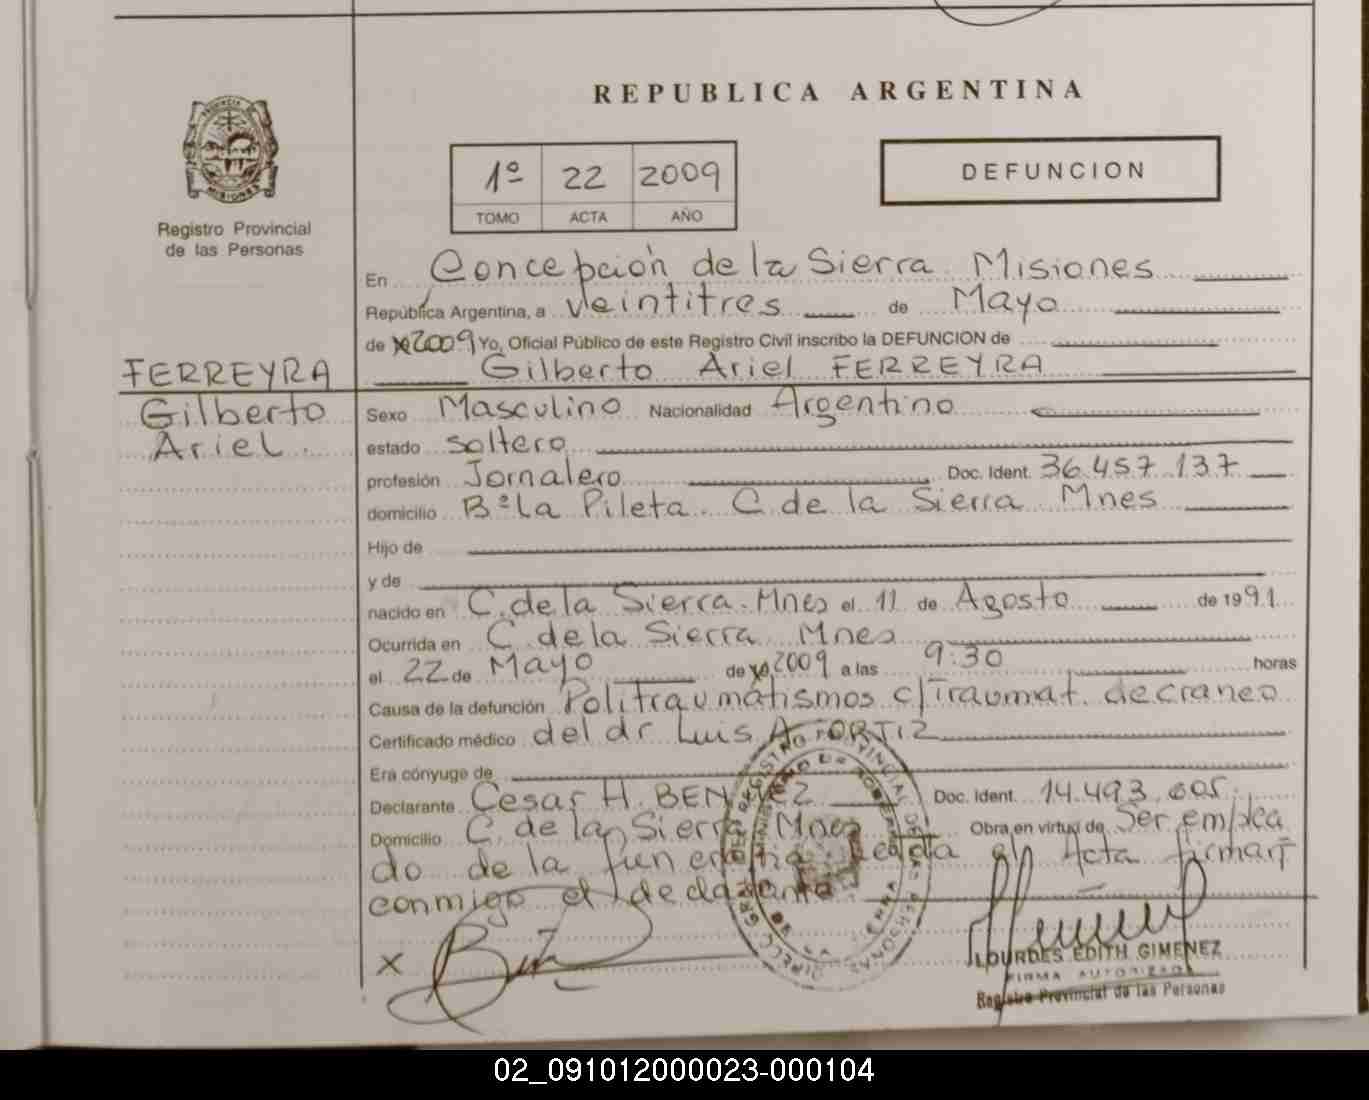 REPUBLICA ARGENTINA
PROVINCIA DE
MISIONES
Registro Provincial
de las Personas
1º 22 2009
TOMO ACTA AÑO
DEFUNCION
En Concepción de la Sierra Misiones
República Argentina, a veintitres de Mayo
de 2009 Yo, Oficial Público de este Registro Civil inscribo la DEFUNCION de
FERREYRA
Gilberto
Ariel
Gilberto Ariel FERREYRA
Sexo Masculino Nacionalidad Argentino
estado soltero
profesión Jornalero Doc. Ident. 36.457.137
domicilio Bº La Pileta. C. de la Sierra Mnes
Hijo de
y de
nacido en C. de la Sierra. Mnes el 11 de Agosto de 1991
Ocurrida en C. de la Sierra Mnes
el 22 de Mayo de 2009 a las 9:30 horas
Causa de la defunción Politraumatismos c/traumat. de craneo
Certificado médico del dr Luis A. ORTIZ
Era cónyuge de
Declarante Cesar H. Doc. Ident. 14.493.005
Domicilio C. de la Sierra Mnes Obra en virtud de Ser emplea
do de la funeraria Leida el Acta firman
conmigo el declarante
X
LOURDES EDITH GIMENEZ
FIRMA AUTORIZADA
Registro Provincial de las Personas
02_091012000023-000104